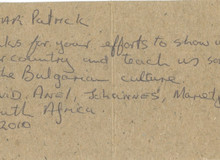 Patrick
ks for your efforts to show u
country and teach us so
he Bulgarian culture
vid, Anel, Johannes,
uth Africa
2010